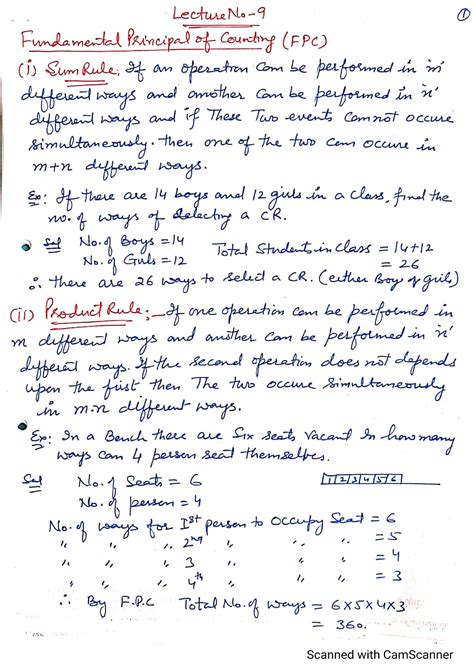 Lecture No-9
①
Fundamental Principal of Counting (FPC)
(i) Sum Rule: If an operation can be performed in 'm'
different ways and another can be performed in 'n'
different ways and if These Two events cannot occure
simultaneously. then one of the two can occure in
m+n different ways.
Ex: If there are 14 boys and 12 girls in a class, find the
no. of ways of selecting a CR.
Sol No. of Boys = 14 Total Students in class = 14+12
No. of Girls = 12 = 26
∴ there are 26 ways to select a CR. (either Boy or girls)
(ii) Product Rule:- If one operation can be performed in
m different ways and another can be performed in 'n'
different ways. If the second operation does not depends
upon the first then The two occure simultaneously
in m.n different ways.
Ex: In a Bench there are Six seats vacant In how many
ways can 4 person seat themselves.
Sol No. of Seats = 6 1 2 3 4 5 6
No. of person = 4
No. of ways for Ist person to occupy Seat = 6
" " " 2nd " " " = 5
" " " 3 " " " = 4
" " " 4th " " " = 3
∴ By F.P.C Total No. of ways = 6×5×4×3
= 360.
Scanned with CamScanner